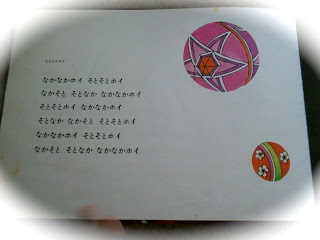 なかなかホイ そとそとホイ
なかそと そとなか なかなかホイ
そとそとホイ なかなかホイ
そとなか なかそと そとそとホイ
なかなかホイ そとそとホイ
なかそと そとなか なかなかホイ